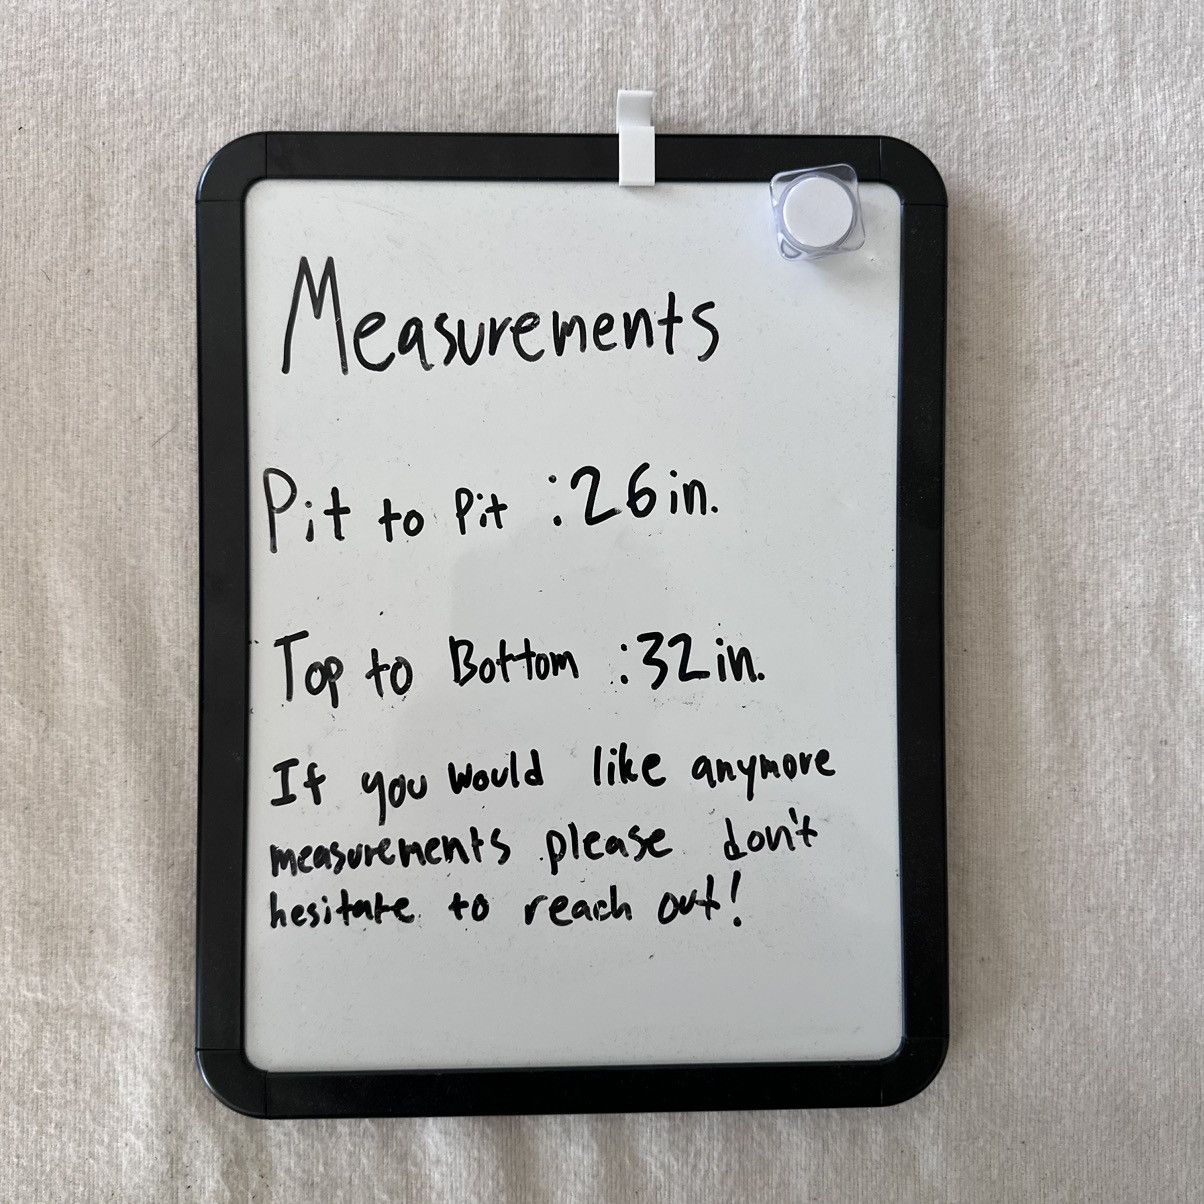 Measurements
Pit to Pit : 26 in.
Top to Bottom : 32 in.
If you would like anymore
measurements please don't
hesitate to reach out!